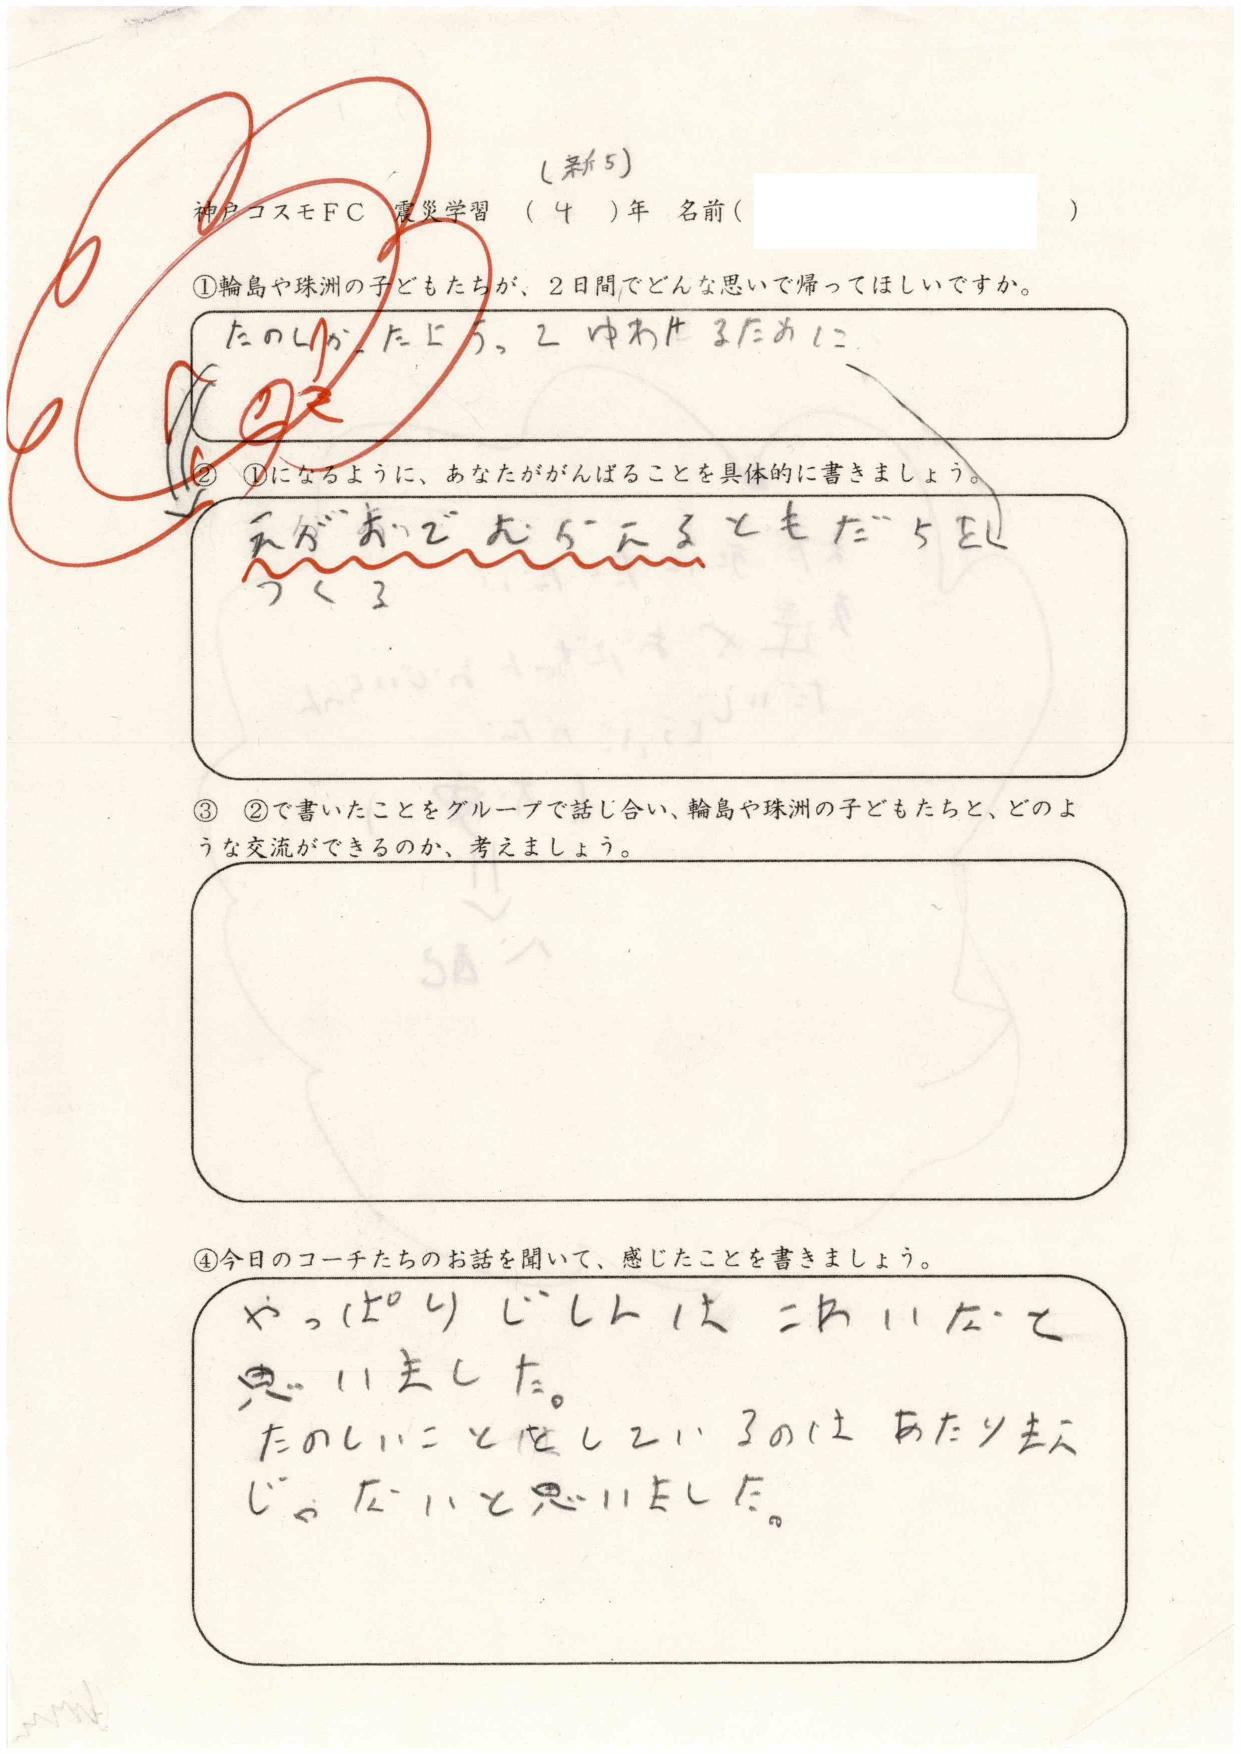 (新5)
神戸コスモFC 震災学習 ( 4 )年 名前( )
①輪島や珠洲の子どもたちが、2日間でどんな思いで帰ってほしいですか。
たのしかったよう。とゆわせるために
② ①になるように、あなたががんばることを具体的に書きましょう。
ともだちを
つくる
③ ②で書いたことをグループで話し合い、輪島や珠洲の子どもたちと、どのよ
うな交流ができるのか、考えましょう。
④今日のコーチたちのお話を聞いて、感じたことを書きましょう。
やっぱりじしんはこわいなと
思いました。
たのしいことをしているのはあたりまえ
じゃないと思いました。